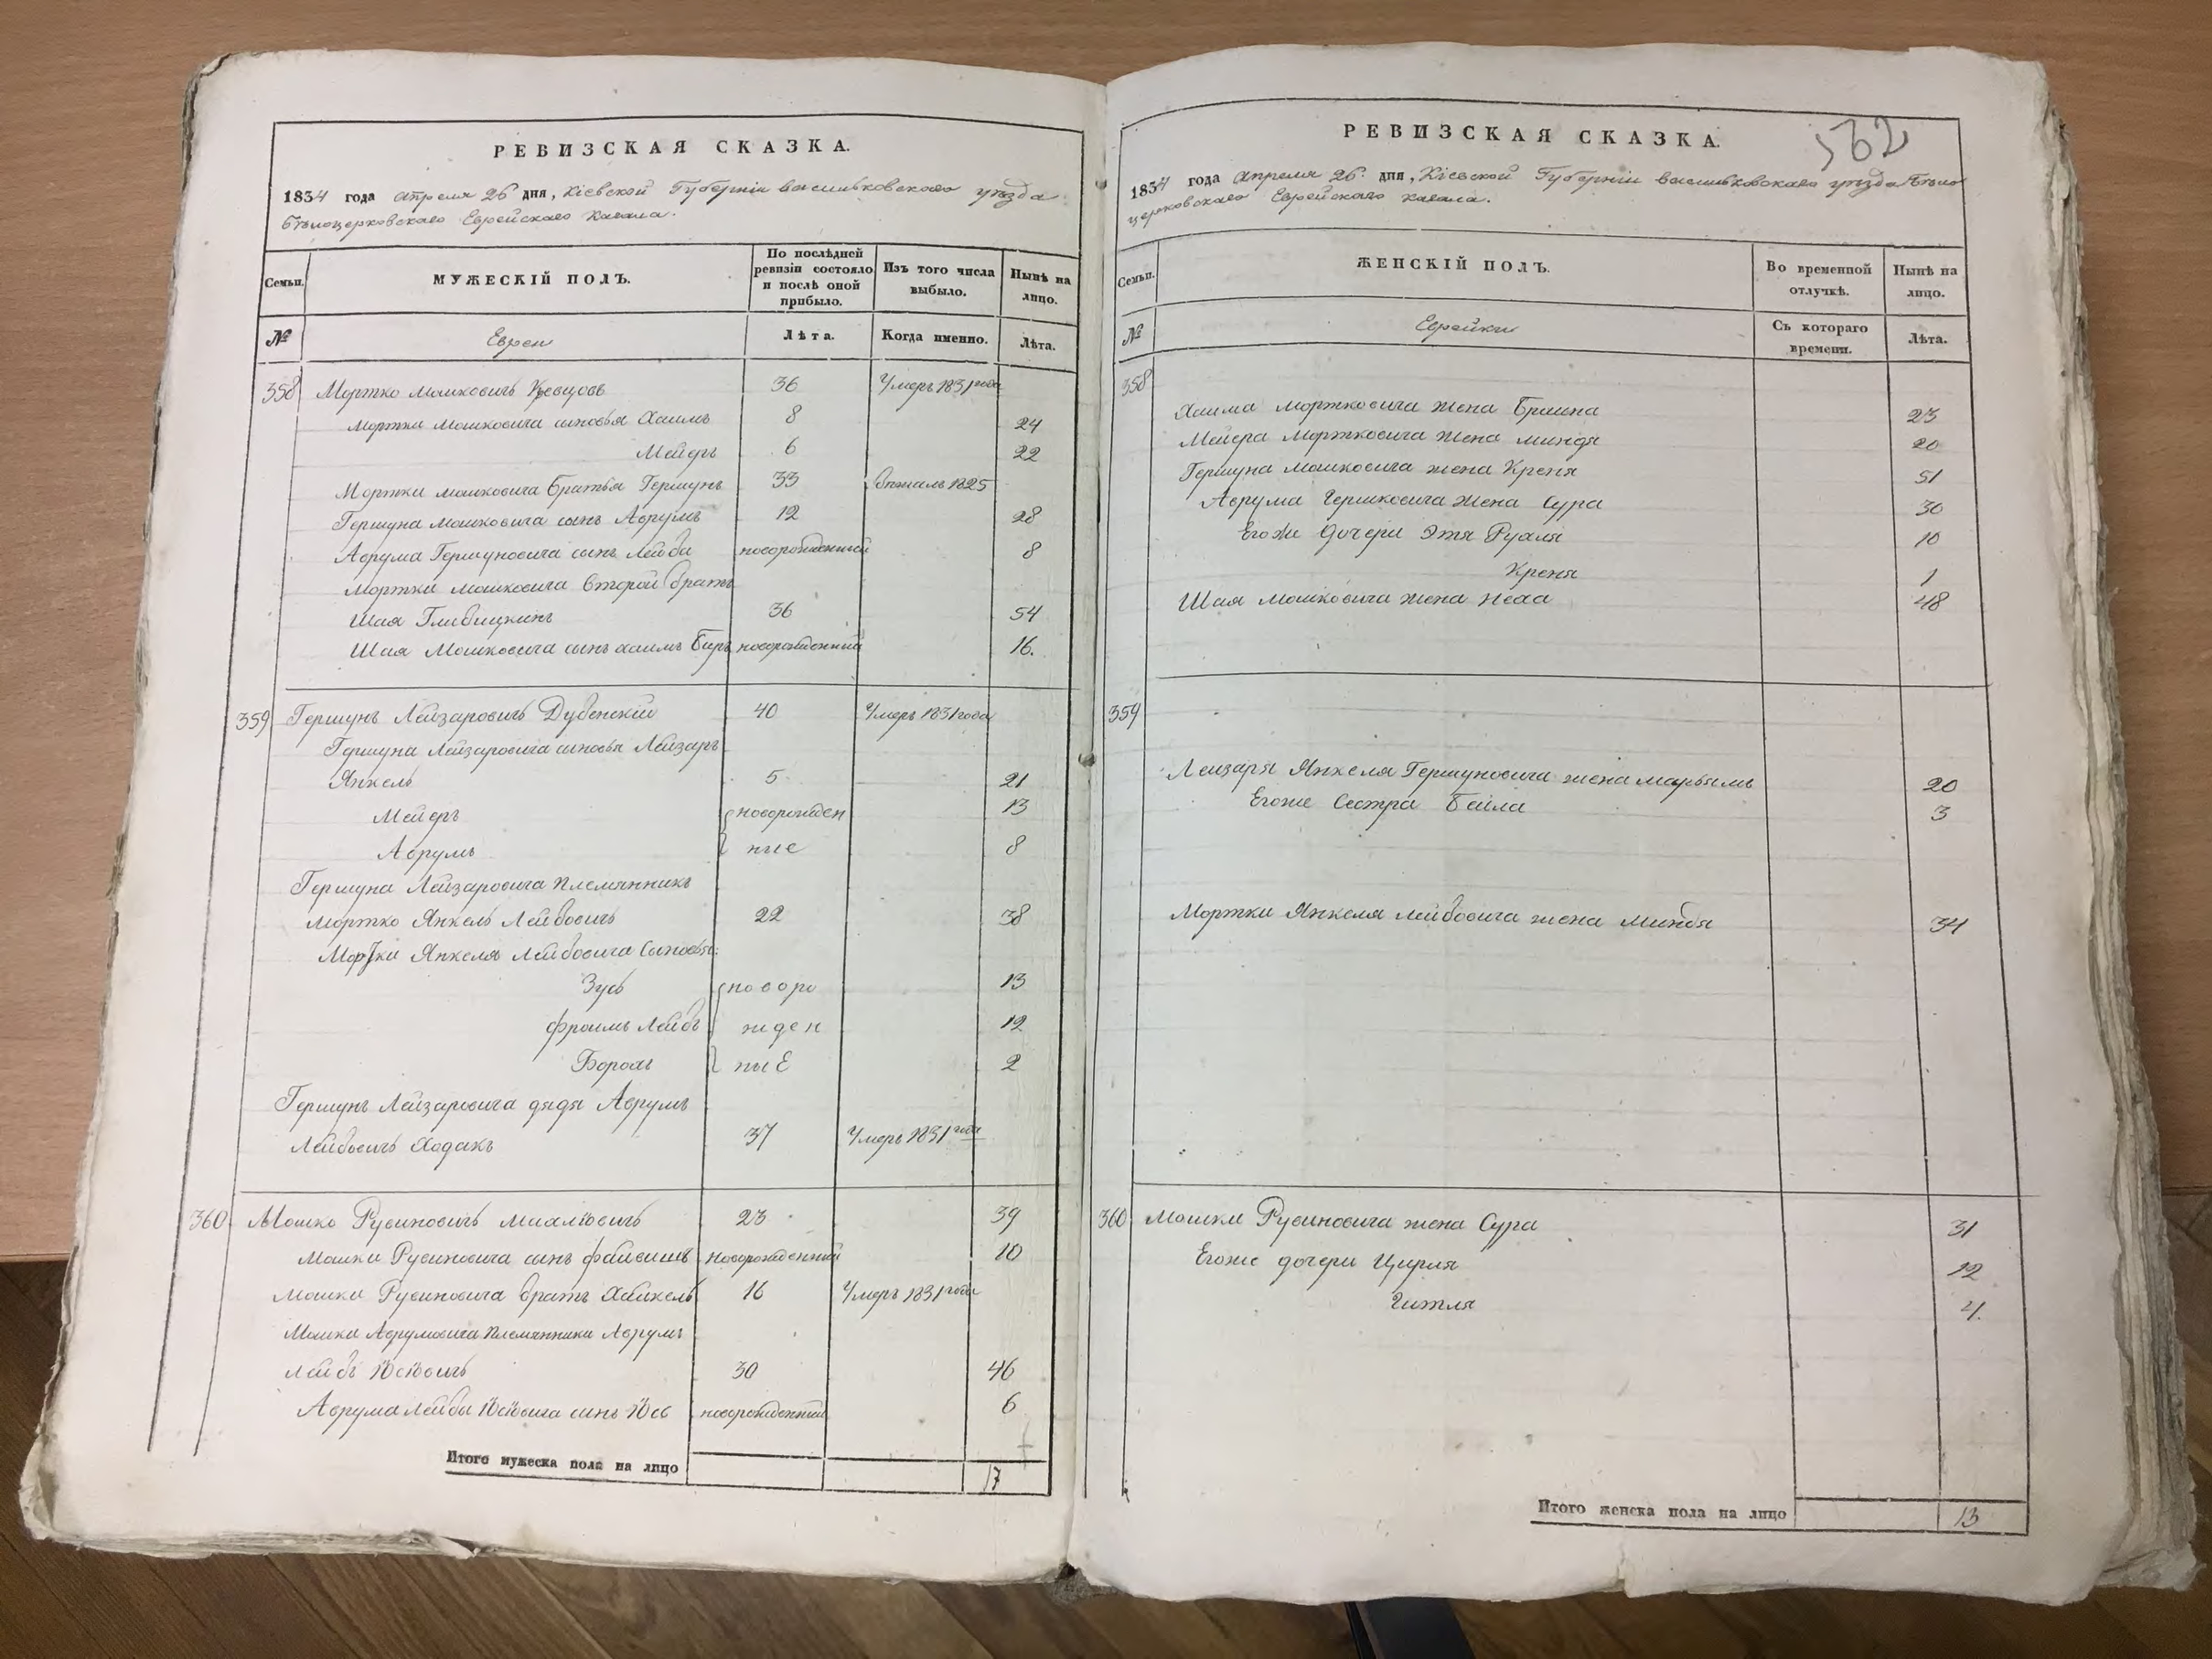 РЕВИЗСКАЯ СКАЗКА.
1834 года Апреля 26 дня, Кіевской Губерніи Васильковскаго уѣзда
Бѣлоцерковскаго Еврейскаго Кагала.
Семьи.
МУЖЕСКІЙ ПОЛЪ.
По послѣдней ревизіи состояло и послѣ оной прибыло.
Изъ того числа выбыло.
Нынѣ на лицо.
№
Евреи
Лѣта.
Когда именно.
Лѣта.
358 Мортко Мошковичъ 36 Умеръ 1831 года
Мортки Мошковича сыновья Хаимъ 8 24
Мейеръ 6 22
Мортки Мошковича братья Гершунъ 33 1825
Гершуна Мошковича сынъ Аврумъ 12 28
Аврума Гершуновича сынъ Лейба новорожденный 8
Мортки Мошковича второй братъ
Шая 36 54
Шая Мошковича сынъ Хаимъ Беръ новорожденный 16.
359 Гершунъ Лейзаровичъ Дубенскій 40 Умеръ 1831 года
Гершуна Лейзаровича сыновья Лейзаръ
Янкель 5 21
Мейеръ новорожден 13
Аврумъ ные 8
Гершуна Лейзаровича племянникъ
Мортко Янкель Лейбовичъ 22 38
Мортки Янкеля Лейбовича сыновья:
Зусь новоро 13
Фроимъ Лейбъ жден 12
Борохъ ные 2
Гершунъ Лейзаровича дядя Аврумъ
Лейбовичъ Ходакъ 37 Умеръ 1831 года
360 Мошко Рувиновичъ 23 39
Мошки Рувиновича сынъ Файвишъ новорожденный 10
Мошки Рувиновича братъ Хайкель 16 Умеръ 1831 года
Мошки Аврумовича племянники Аврумъ
Лейбъ Юсіовичъ 30 46
Аврума Лейбы Юсіовича сынъ Юсь новорожденный 6
Итого мужеска пола на лицо 17
562
РЕВИЗСКАЯ СКАЗКА.
1834 года Апреля 26 дня, Кіевской Губерніи Васильковскаго уѣзда Бѣло
церковскаго Еврейскаго Кагала.
Семьи.
ЖЕНСКІЙ ПОЛЪ.
Во временной отлучкѣ.
Нынѣ на лицо.
№
Еврейки
Съ котораго времени.
Лѣта.
358
Хаима Мортковича жена 23
Мейера Мортковича жена Миндя 20
Гершуна Мошковича жена Креня 51
Аврума Гершковича жена Сура 30
Его же дочери Этя 10
Креня 1
Шая Мошковича жена 48
359
Лейзаря Янкеля Гершуновича жена Марьямъ 20
Его же сестра Бейла 3
Мортки Янкеля Лейбовича жена Миндя 34
360 Мошки Рувиновича жена Сура 31
Его же дочери Цирля 12
Гитля 4.
Итого женска пола на лицо 13